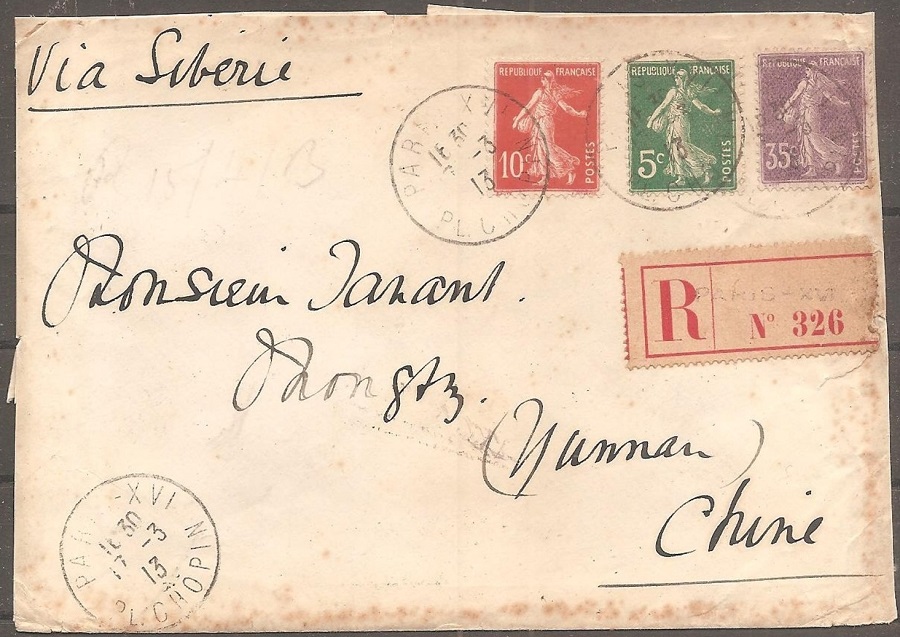 Via Sibérie
REPUBLIQUE FRANÇAISE
10c
POSTES
REPUBLIQUE FRANÇAISE
5c
POSTES
REPUBLIQUE FRANÇAISE
35c
POSTES
PARIS-XVI
16 30
-3
13
PL. CHOPIN
R
PARIS-XVI
Nº 326
Monsieur Tanant.
Mongtze.
(Yunnan)
Chine
PARIS-XVI
16 30
-3
13
PL. CHOPIN